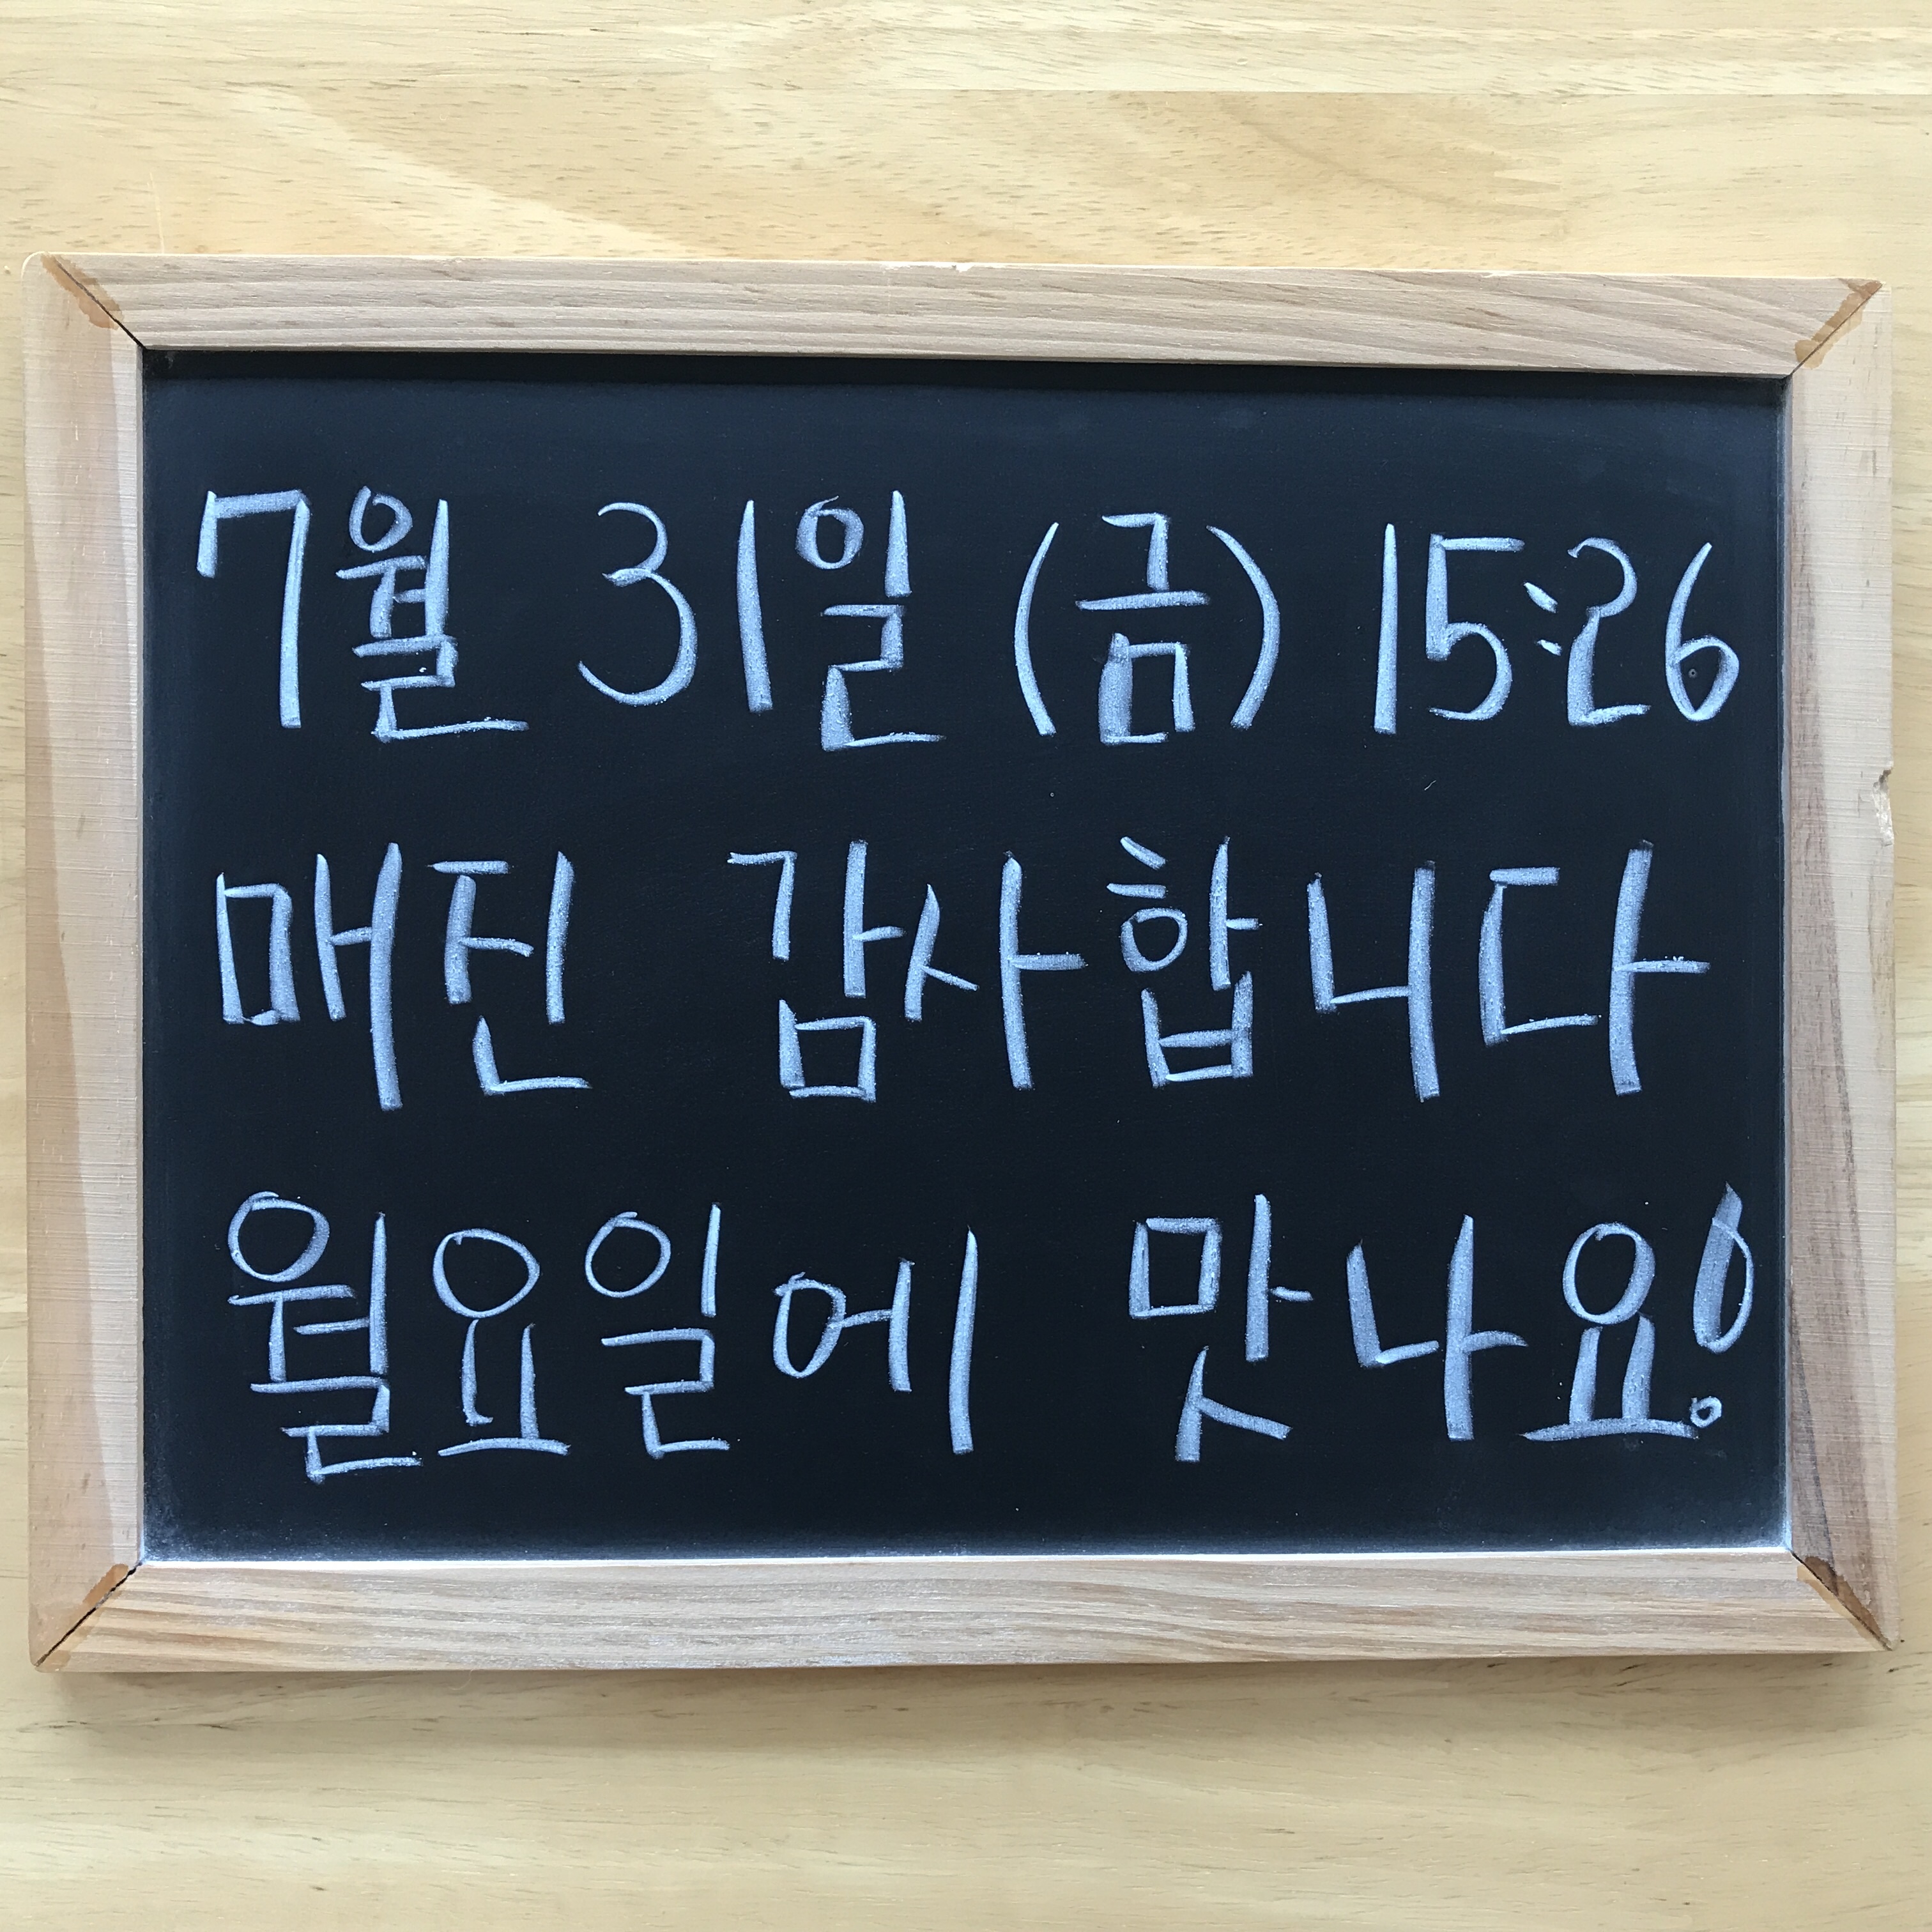 7월 31일 (금) 15:26
매진 감사합니다
월요일에 맛나요!